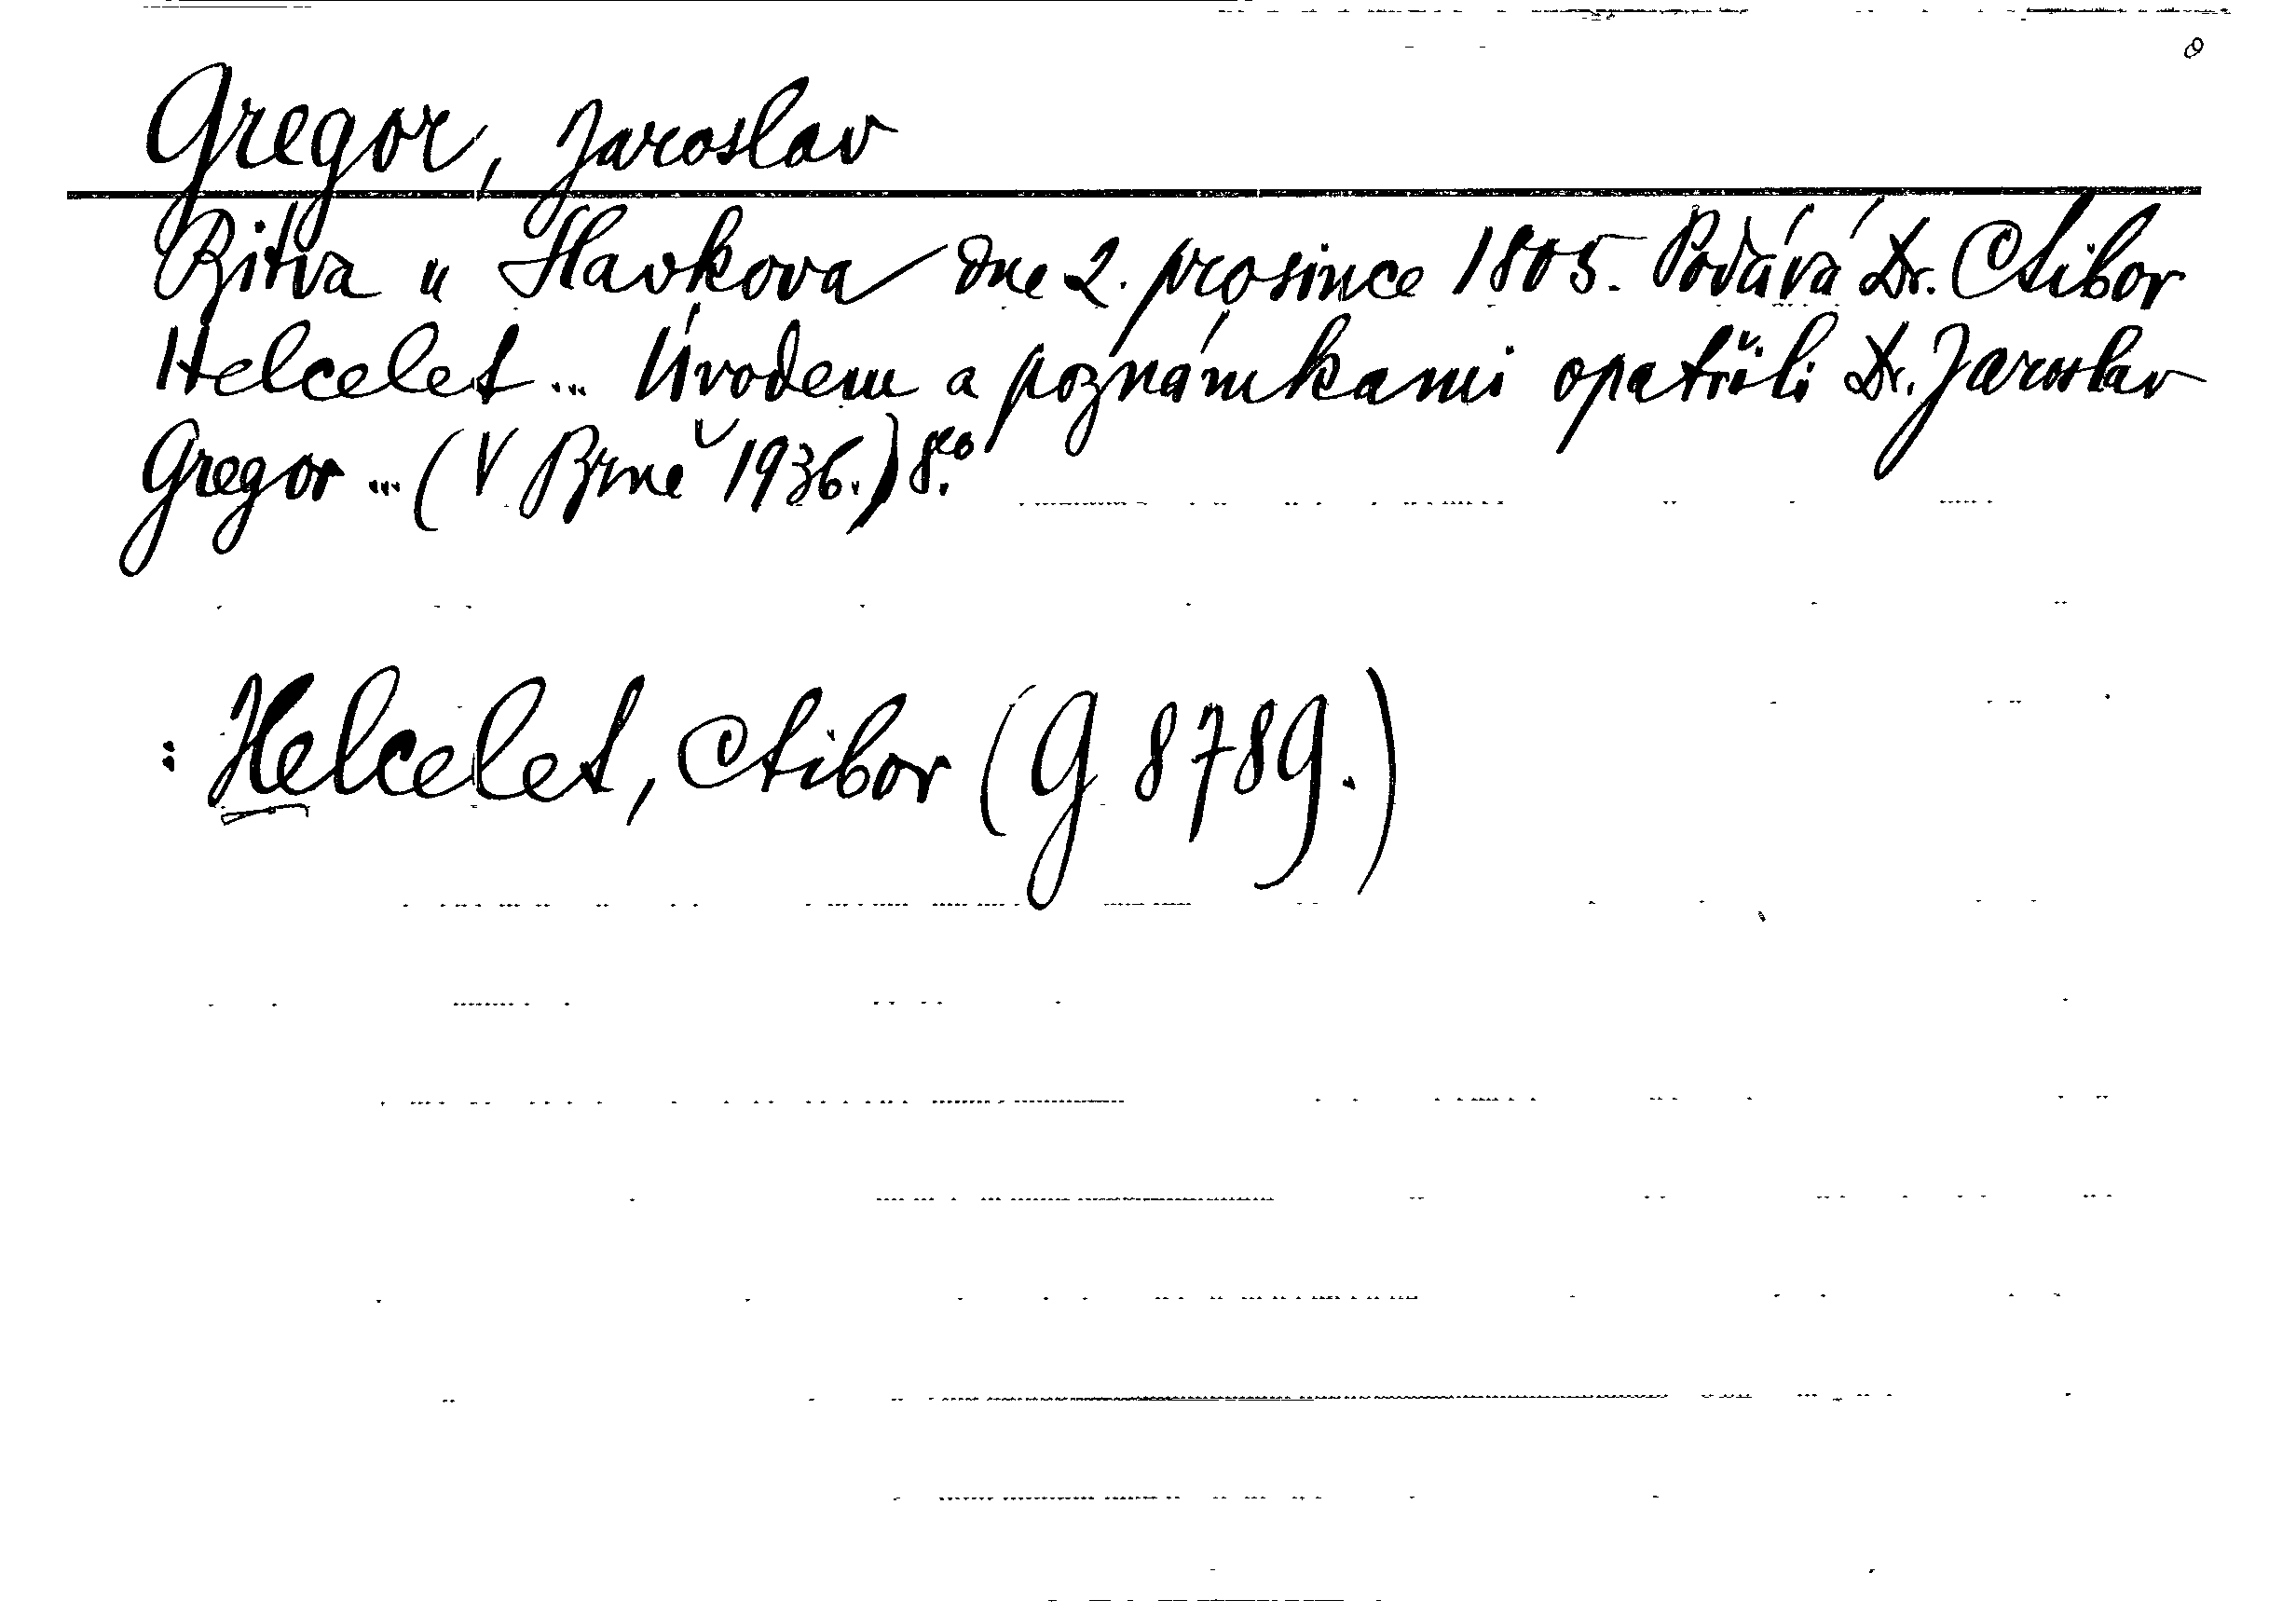 Gregor, Jaroslav
Bitva u Slavkova dne 2. prosince 1805. Podává Dr. Ctibor
Helcelet ... Úvodem a poznámkami opatřili Dr. Jaroslav
Gregor ... (V Brně 1936.) 8°.
: Helcelet, Ctibor (G 8789.)